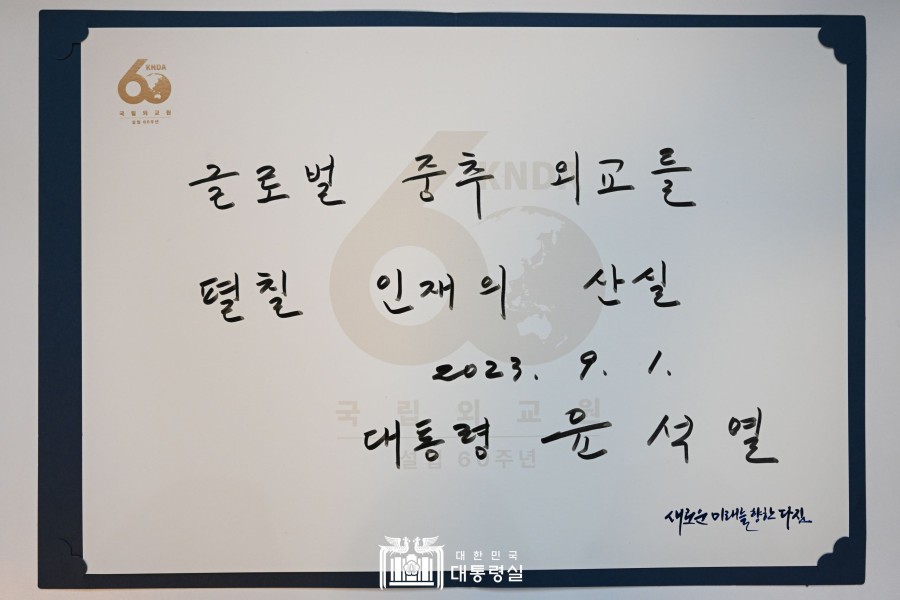 60 KNDA
국립외교원
설립 60주년
글로벌 중추 외교를
펼칠 인재의 산실
2023. 9. 1.
대통령 윤석열
60 KNDA
국립외교원
설립 60주년
새로운 미래를 향한 다짐
대한민국
대통령실